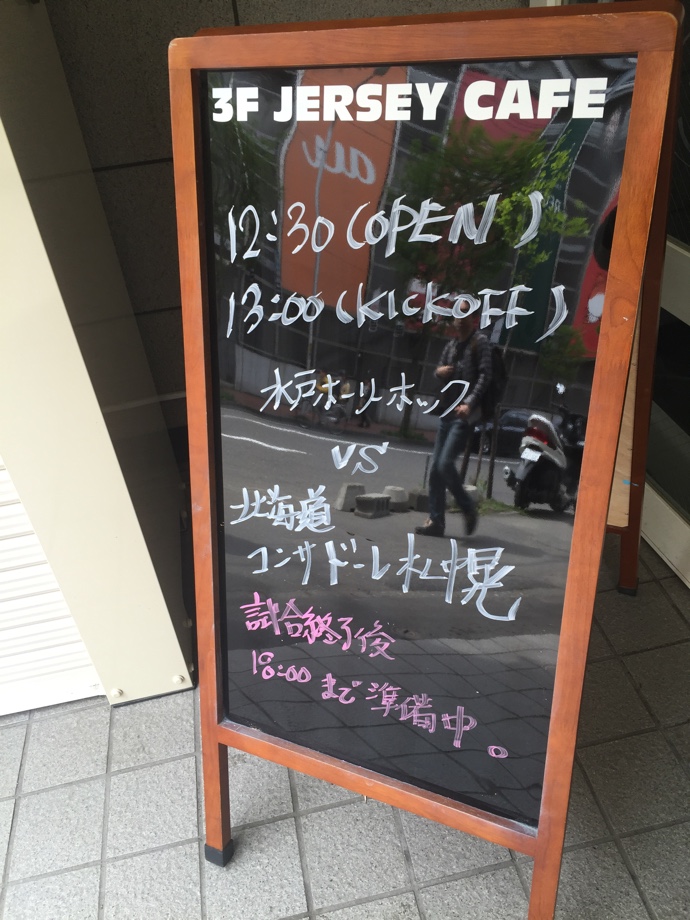 3F JERSEY CAFE
au
12:30 (OPEN)
13:00 (KICKOFF)
水戸ホーリーホック
VS
北海道
コンサドーレ札幌
試合終了後
18:00 まで準備中。